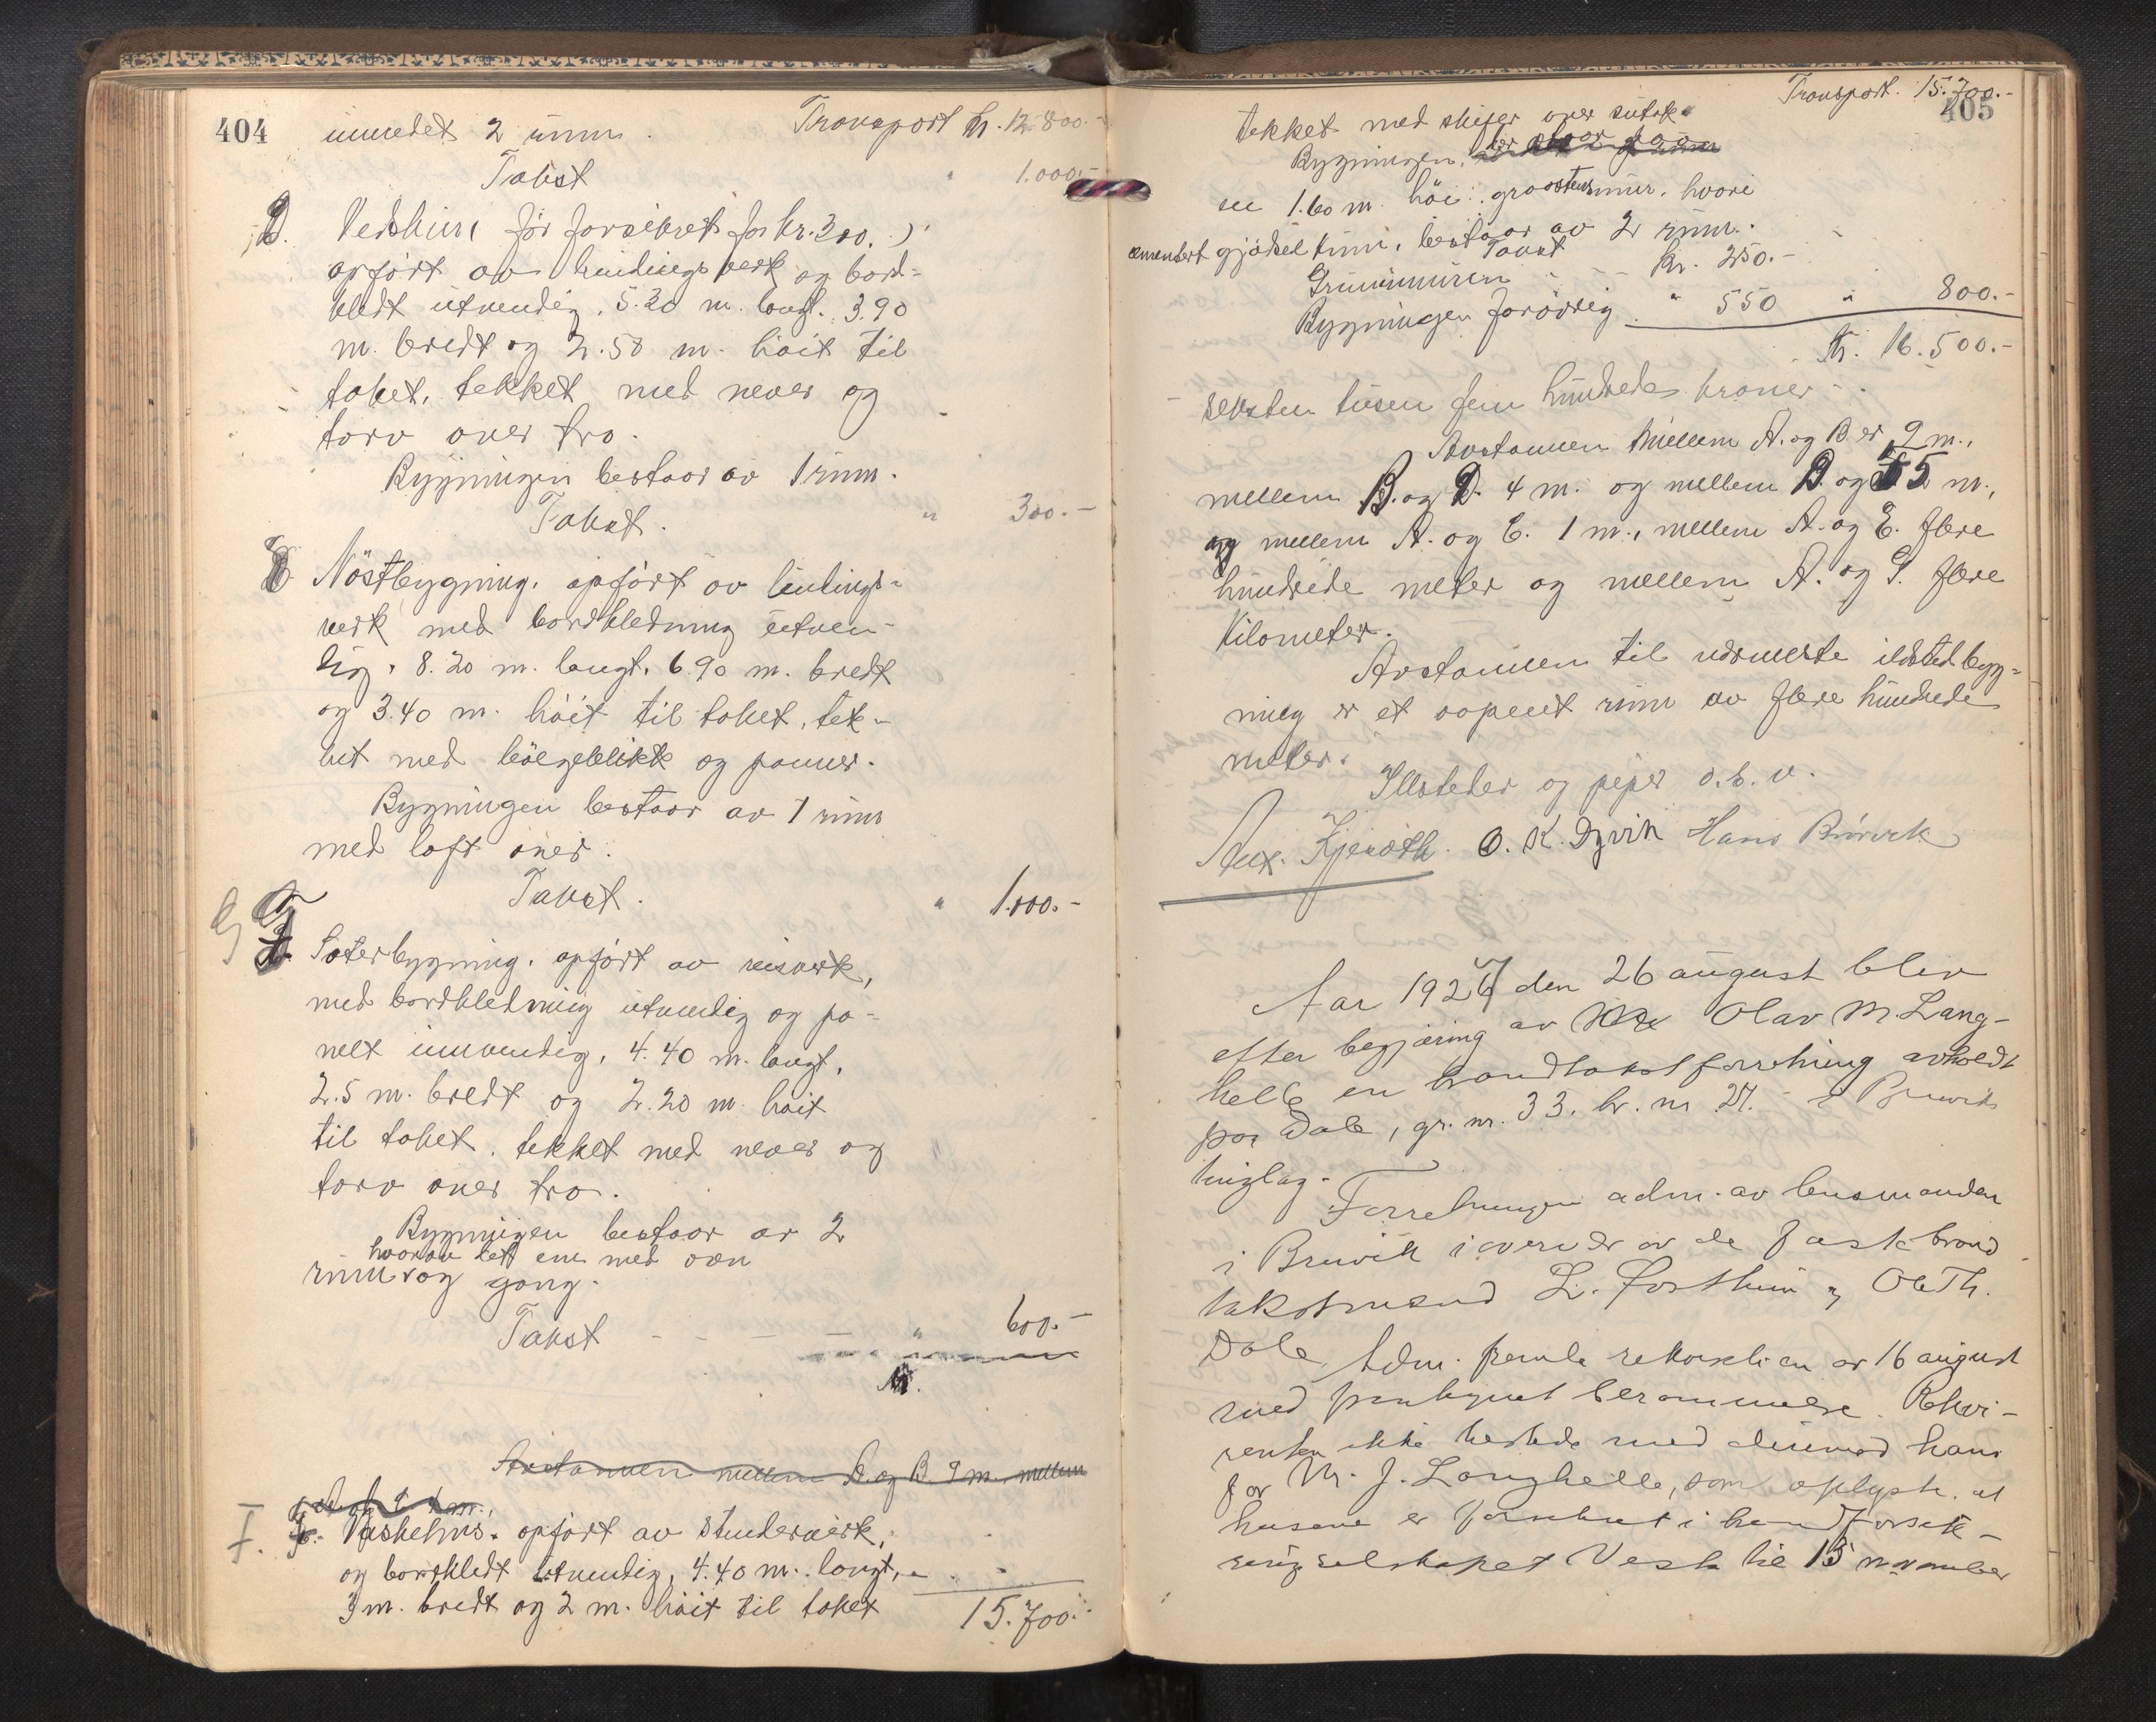 404
innredet 2 rum. Transport kr. 12.800.-
Takst " 1.000.-
D. Vedskur (før forsikret for kr. 300.)
opført av bindingsverk og bord-
kledt utvendig, 5.20 m. langt. 3.90
m. bredt og 2.50 m. høit til
taket, tekket med never og
torv over tro.
Bygningen bestaar av 1 rum.
Takst. " 300.-
E Nöstbygning. opført av bindings-
verk med bordkledning utven-
dig. 8.20 m. langt. 6.90 m. bredt
og 3.40 m. höit til taket, tek-
ket med bölgeblikk og panner.
Bygningen bestaar av 1 rum
med loft over.
Takst. " 1.000.-
G
Sæterbygning. opført av reisverk,
med bordkledning utvendig og pa-
nelt innvendig, 4.40 m. langt,
2.5 m. bredt og 2.20 m. höit
til taket. tekket med never og
torv over tro.
Bygningen bestaar av 2
hvorav det ene med ovn
rum og gang.
Takst " 600.-
Kr.
Avstannen mellem A. og B 9 m., mellem
F. Vaskehus. opført av stenderverk,
og bordkledt utvendig, 4.40 m. langt,
3 m. bredt og 2 m. höit til taket 15.700.-
Transport. 15.700.-
405
tekket med skifer over sutak.
Bygningen,
en 1.60 m. höi graastensmur, hvori
cementert gjödselkum, bestaar av 2 rum.
Takst
Grunnmuren kr. 250.-
Bygningen forövrig " 550 " 800.-
Kr. 16.500.-
seksten tusen fem hundrede kroner
Avstannen mellem A. og B er 9 m.,
mellem B. og D. 4 m. og mellem D. og F 5 m.,
og mellem A. og C. 1 m., mellem A. og E. flere
hundrede meter og mellem A. og G. flere
kilometer.
Avstannen til nærmeste ildstedbyg-
ning er et aapent rum av flere hundrede
meter.
Illsteder og piper o.b.v.
O. K. Dyvik Hans Brørvik
Aar 1927 den 26 august blev
efter begjæring av Olav M. Lang-
helle en brandtakstforretning avholdt
paa Dale, gr. nr. 33. br. nr 27. i Bruvik
tinglag.
Forretningen adm. av lensmanden
i Bruvik i overvær av de faste brand-
takstmænd L. Fosheim og Ole Th.
Dale. Adm. fremla rekvisition av 16 august
med paategnet berammelse. Rekvi-
renten ikke tilstede med derimod hans
far M. J. Langhelle, som oplyste at
husene er forsikret i brandforsik-
ringsselskapet Vesta til 15 november